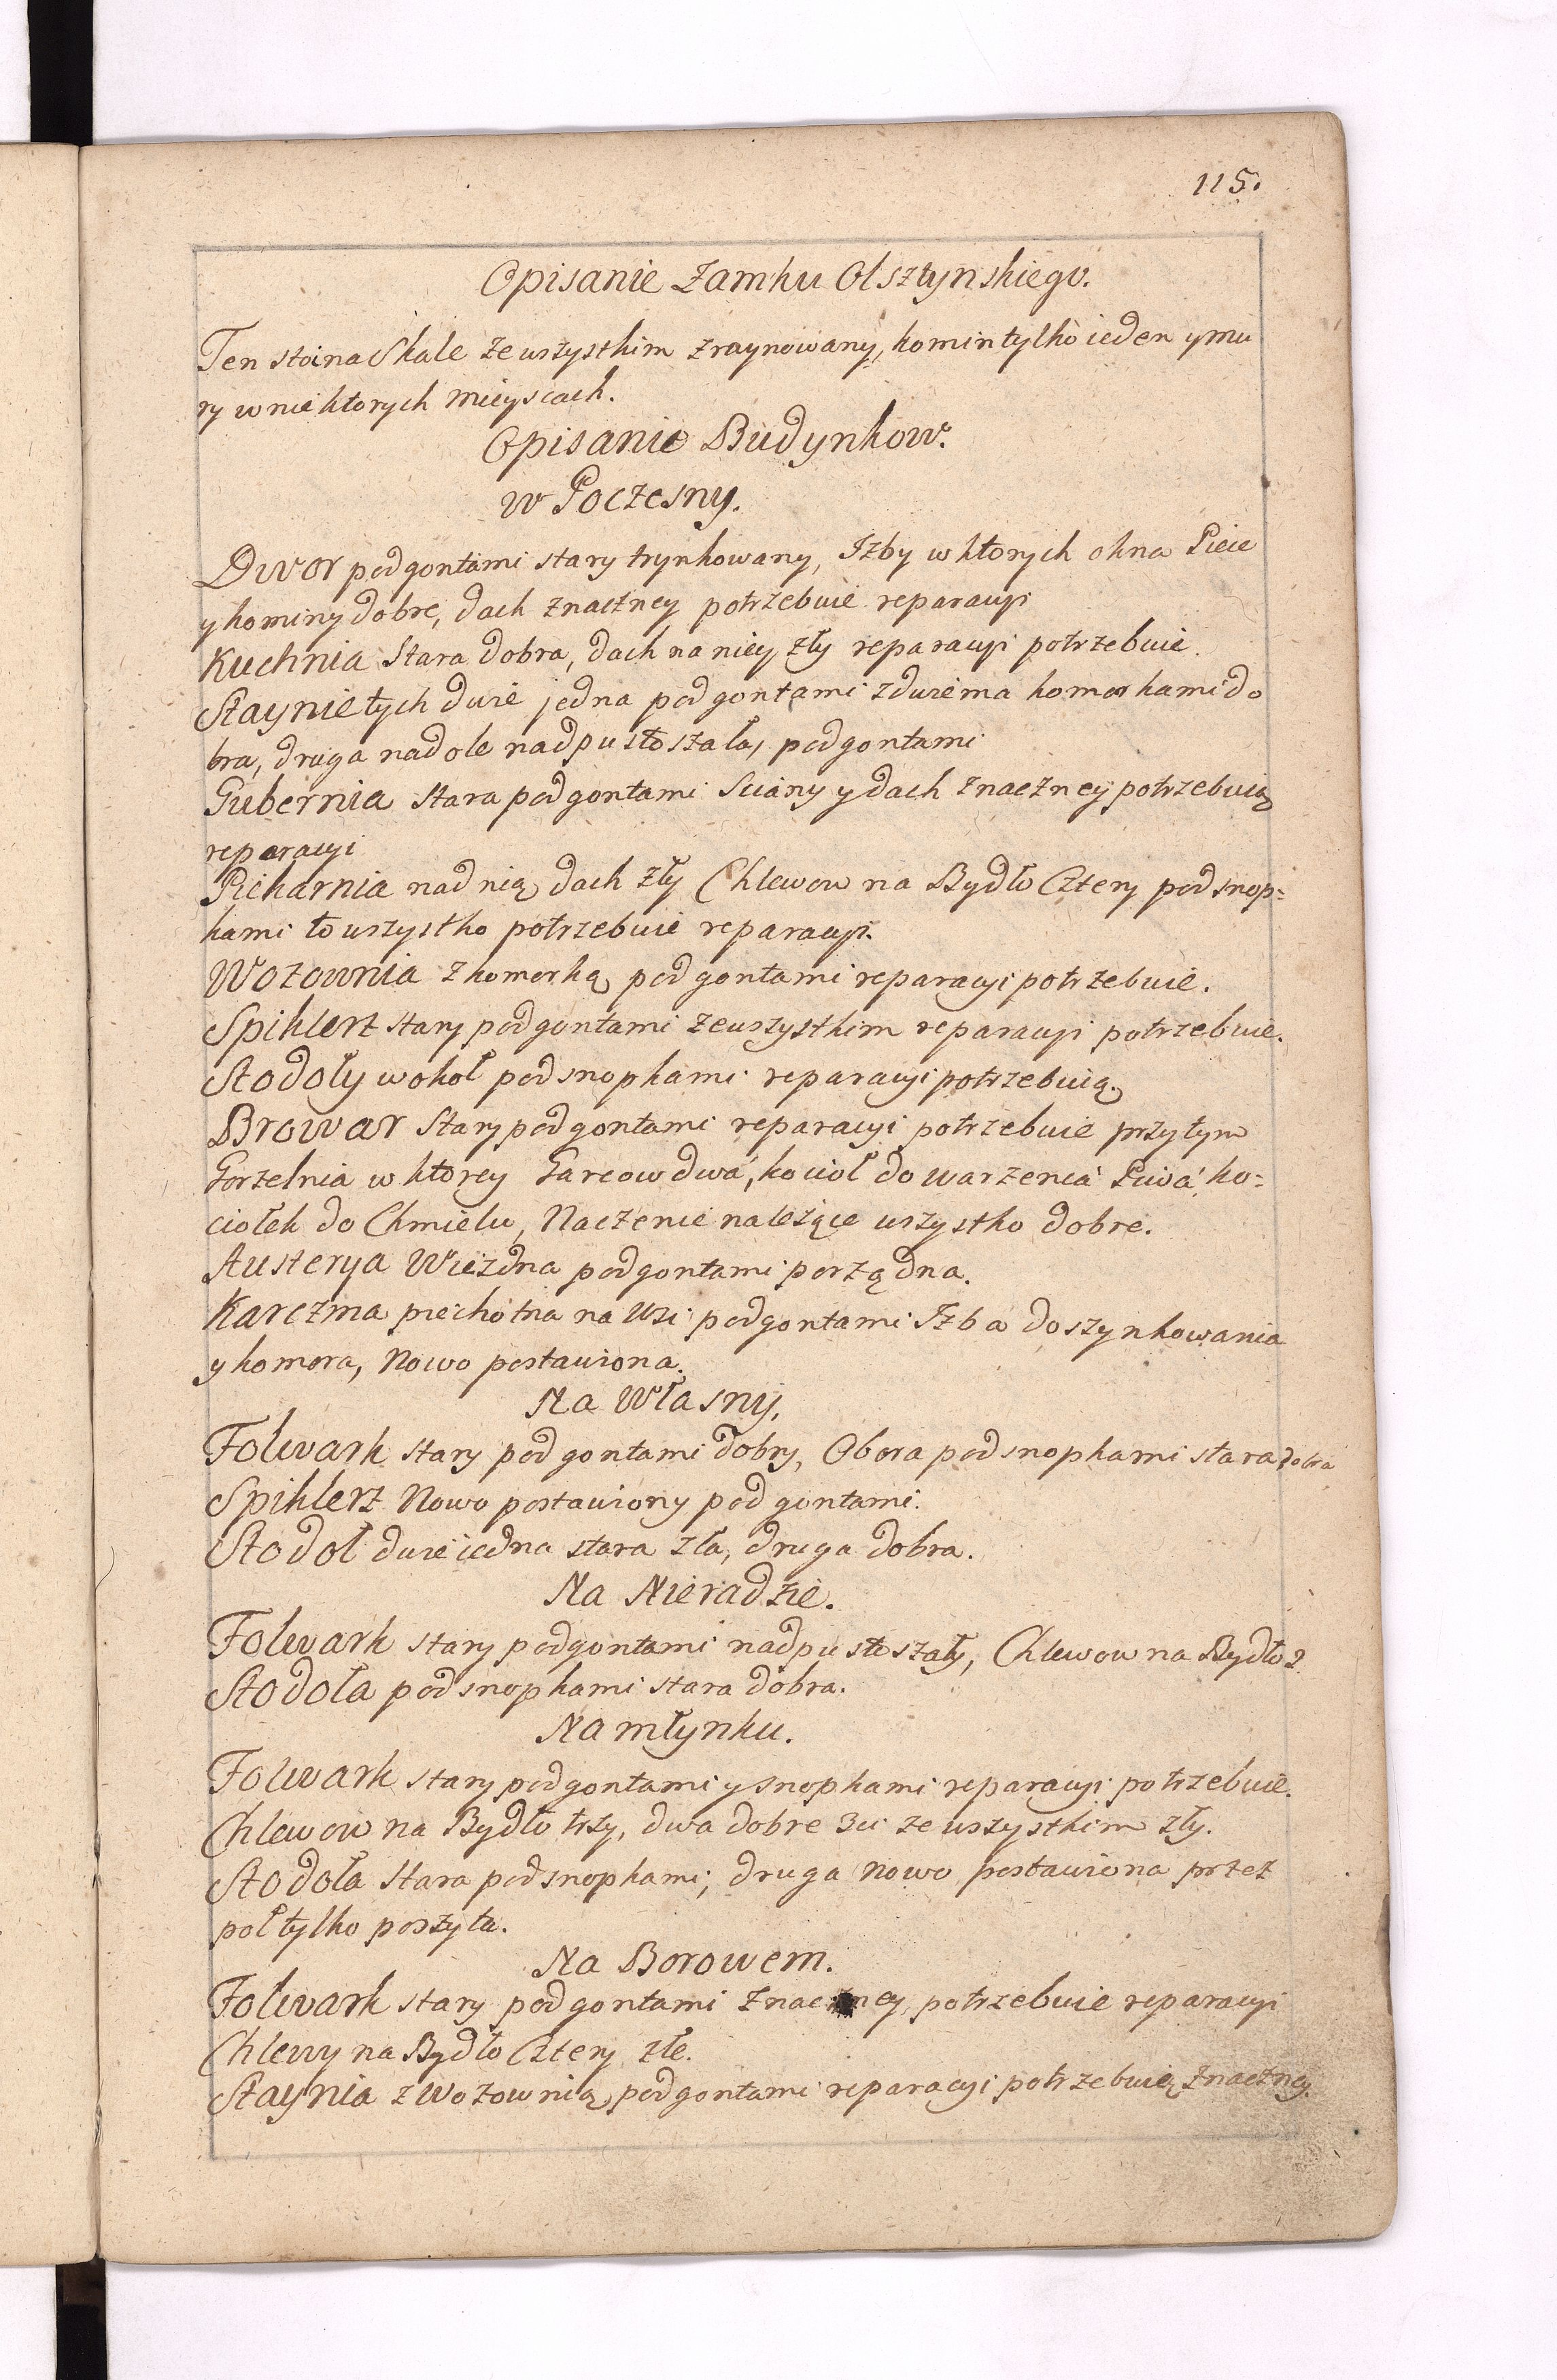 115.
Opisanie Zamku Olsztynskiego.
Ten stoi na Skale ze wszystkim zraynowany, komin tylko ieden y mu
ry w niektorych mieyscach.
Opisanie Budynkow.
w Poczesny.
Dwor pod gontami stary trynkowany, Izby w ktorych okna Piece
y kominy dobre, dach znaczney potrzebuie reparacyi
Kuchnia Stara dobra, dach na niey zły reparacyi potrzebuie.
Staynie tych dwie jedna pod gontami z dwiema komorkami do
bra, druga na dole nadpustoszała, pod gontami
Gubernia stara pod gontami Sciany y dach znaczney potrzebuią
reparacyi
Piekarnia nad nią dach zły Chlewow na Bydło Cztery pod snop=
kami to wszystko potrzebuie reparacyi.
Wozownia z komorką pod gontami reparacyi potrzebuie.
Spihlerz stary pod gontami ze wszystkim reparacyi potrzebuie.
Stodoły wokoł pod snopkami reparacyi potrzebuią.
Browar Stary pod gontami reparacyi potrzebuie przy tym
Gorzelnia w ktorey Garcow dwa, kocioł do warzenia Piwa ko=
ciołek do Chmielu, Naczenie należące wszystko dobre.
Austerya Wiezdna pod gontami porządna.
Karczma piechotna na Wsi pod gontami Izba do szynkowania
y komora, Nowo postawiona.
Na Własny.
Folwark stary pod gontami dobry, Obora pod snopkami stara dobra
Spihlerz Nowo postawiony pod gontami.
Stodoł dwie iedna stara zła, druga dobra.
Na Nieradzie.
Folwark stary pod gontami nadpustoszały, Chlewow na Bydło 2.
Stodoła pod snopkami stara dobra.
Na młynku.
Folwark stary pod gontami y snopkami reparacyi potrzebuie.
Chlewow na Bydło trzy, dwa dobre 3ci ze wszystkim zły.
Stodoła Stara pod snopkami, druga Nowo postawiona przez
poł tylko poszyta.
Na Borowem.
Folwark stary pod gontami znaczney potrzebuie reparacyi
Chlewy na Bydło Cztery złe.
Staynia z Wozownią pod gontami reparacyi potrzebuią znaczney.